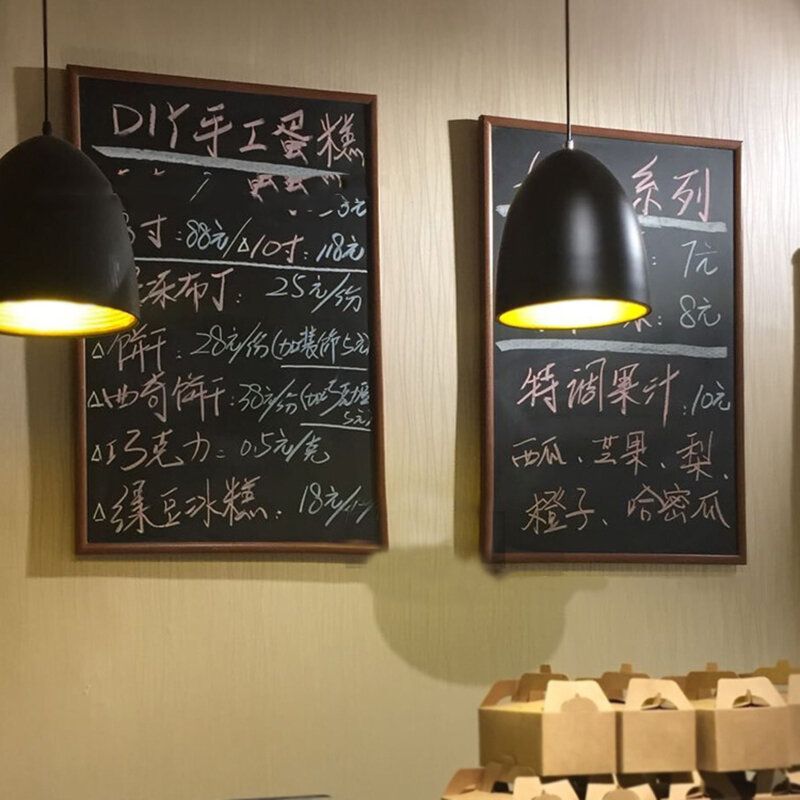 DIY手工蛋糕
3元
寸:88元/△10寸:118元
布丁: 25元/份
△饼干: 28元/份(加装饰5元)
△曲奇饼干:38元/份(加巧克力
5元)
△巧克力: 0.5元/克
△绿豆冰糕: 18元/
系列
7元
8元
特调果汁:10元
西瓜、芒果、梨、
橙子、哈密瓜